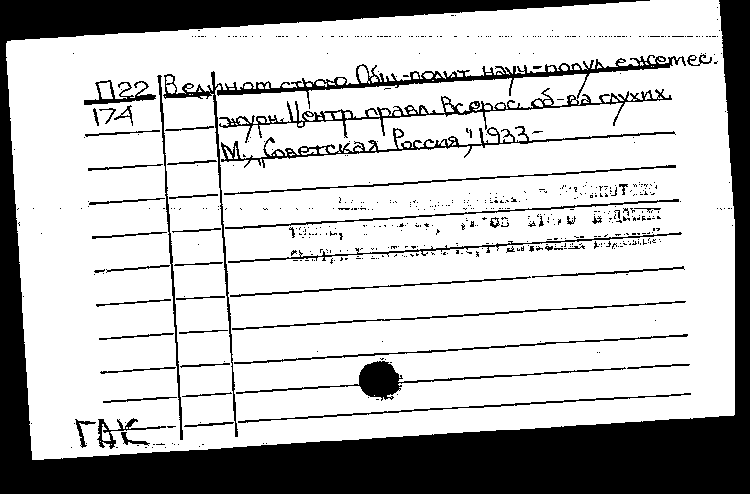 П22 В едином строю. Общ.-полит. науч.-попул. ежемес.
174 журн. Центр. правл. Всерос. об-ва глухих.
М., "Советская Россия", 1933-
библиотеке
этого издания
ГАК